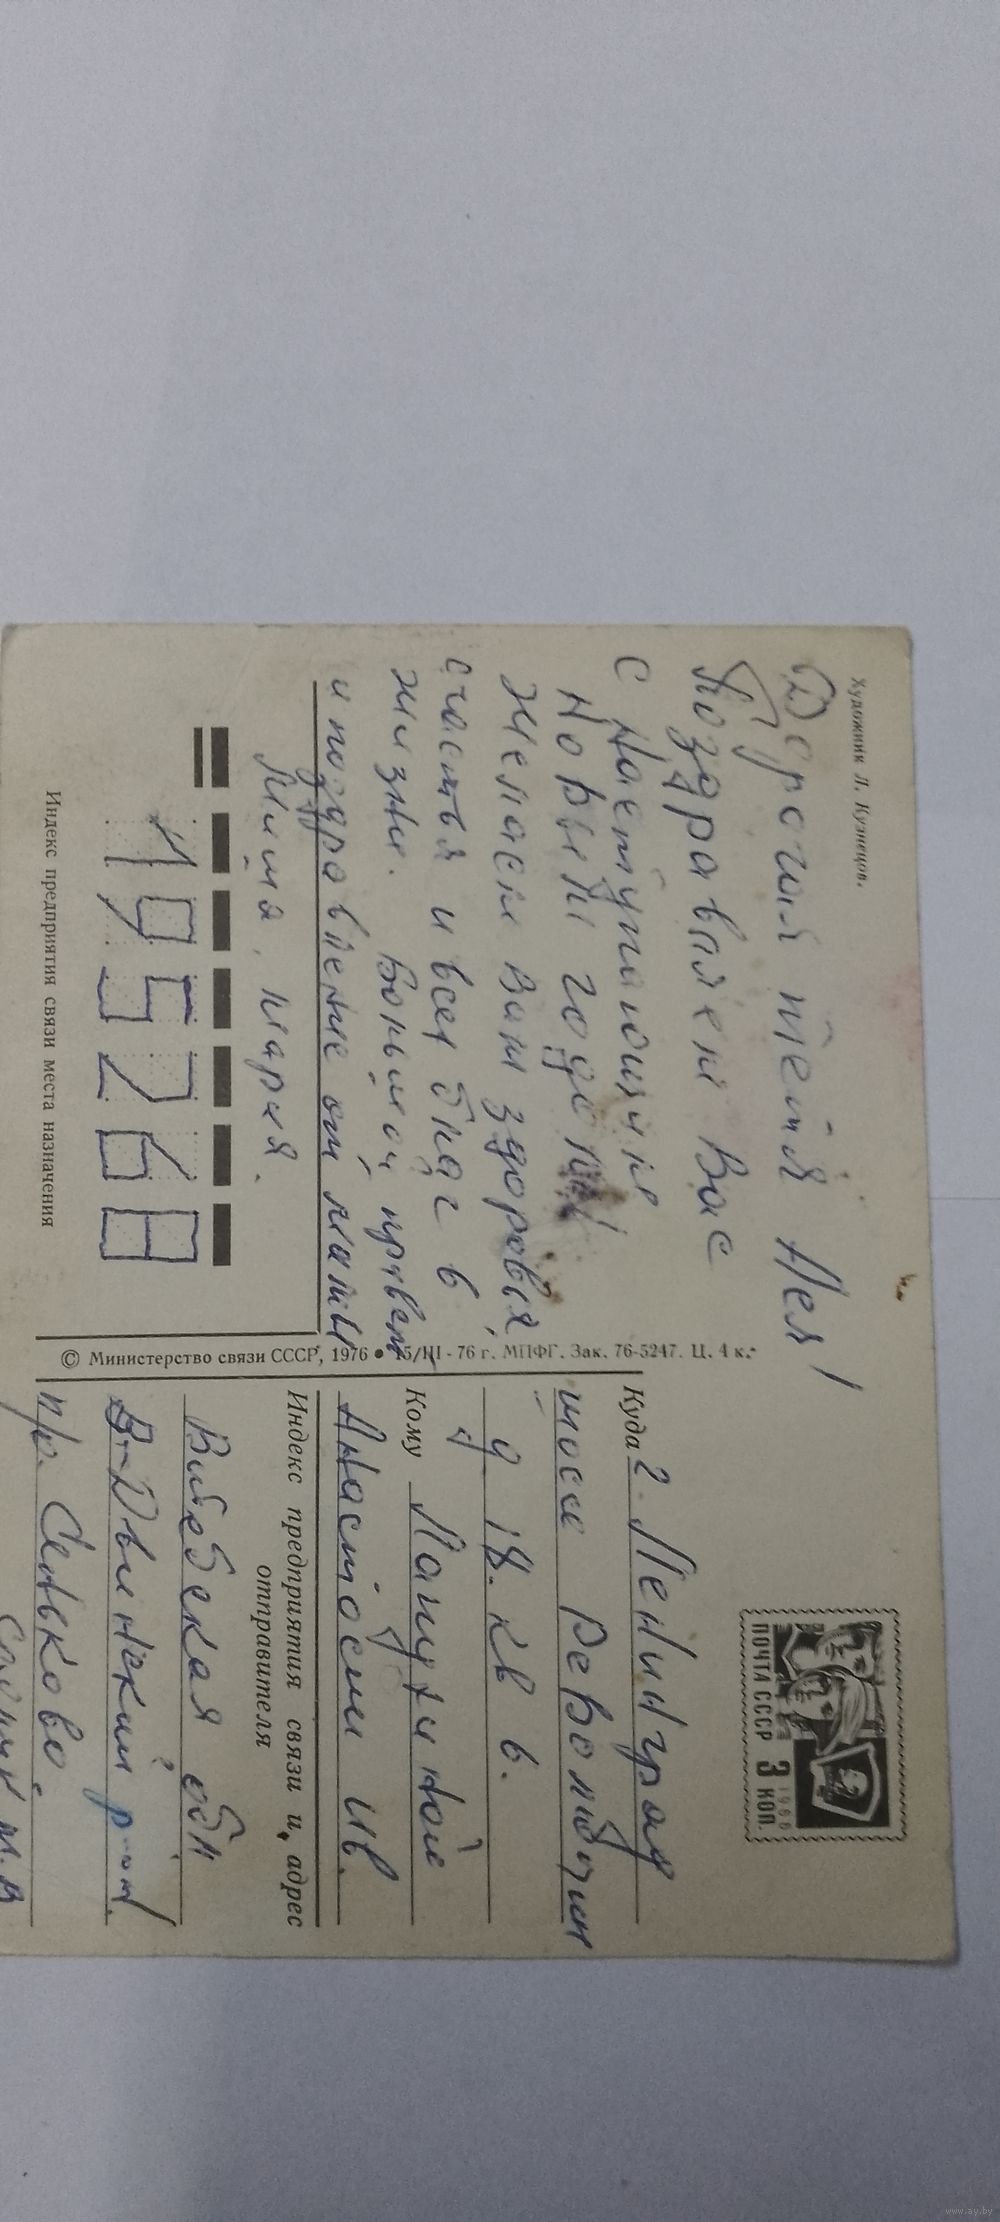 Художник Л. Кузнецов.
Дорогая тетя Неля!
Поздравляем Вас
с Наступающим
Новым годом!
Желаем Вам здоровья,
счастья и всех благ в
жизни. Большой привет
и поздравление от мамы
Миша, Мария.
195268
Индекс предприятия связи места назначения
© Министерство связи СССР, 1976 • 15/III - 76 г. МПФГ. Зак. 76-5247. Ц. 4 к.
ПОЧТА СССР 3 КОП.
1966
Куда г. Ленинград
шоссе Революции
д 18. кв 6.
Кому Лапутиной
Анастасии Ив.
Индекс предприятия связи и адрес
отправителя
Витебская обл
В-Двинский р-он.
п/о. Сеньково.
www.ay.by